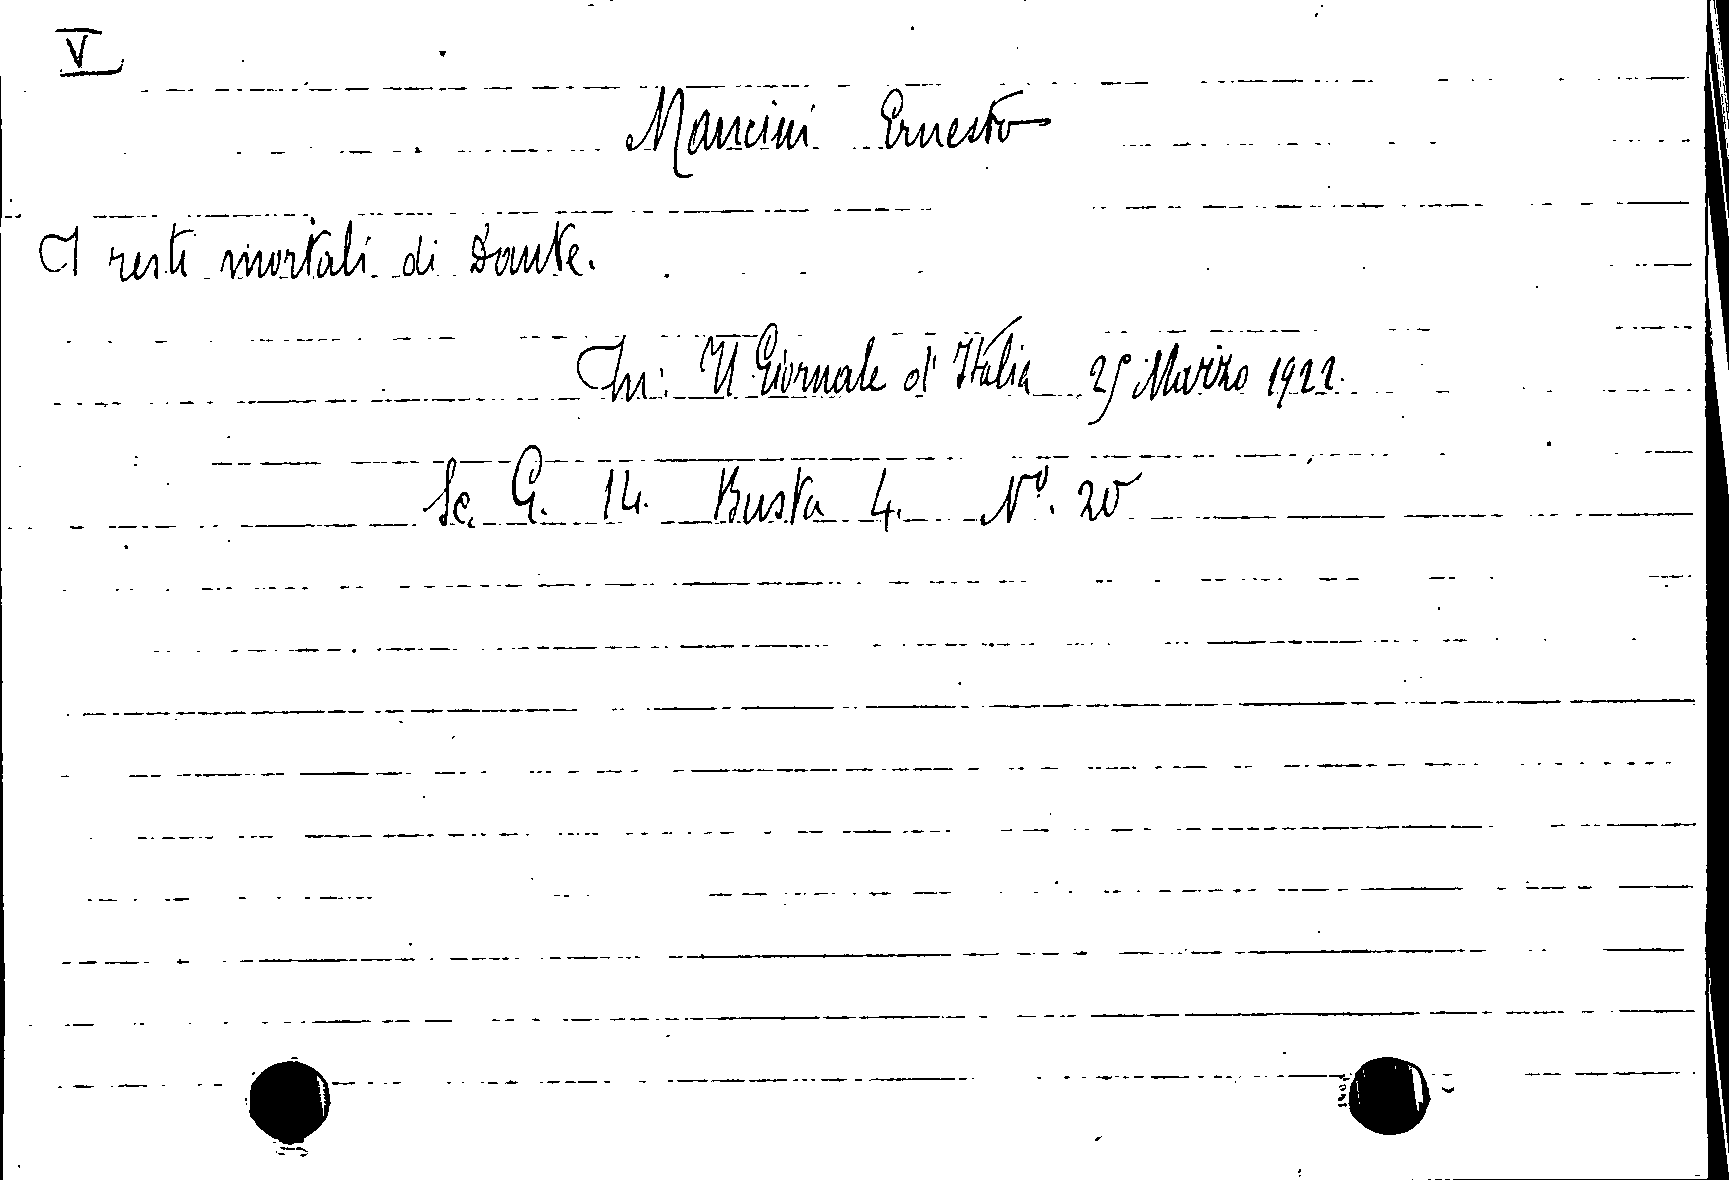 V
Mancini Ernesto
I resti mortali di Dante.
In: Il Giornale d'Italia 25 Marzo 1922.
Sc. G. 14. Busta 4. No. 20